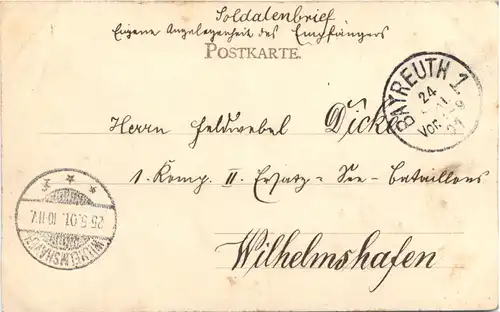 Soldatenbrief
Eigene Angelegenheit des Empfängers
POSTKARTE.
BAYREUTH 1
24
VOR. 
Herrn Feldwebel Dicke
1. Komp. II. Ersatz-See-Bataillons
Wilhelmshafen
WILHELMSHAVEN
25.5.01. 10-11V.